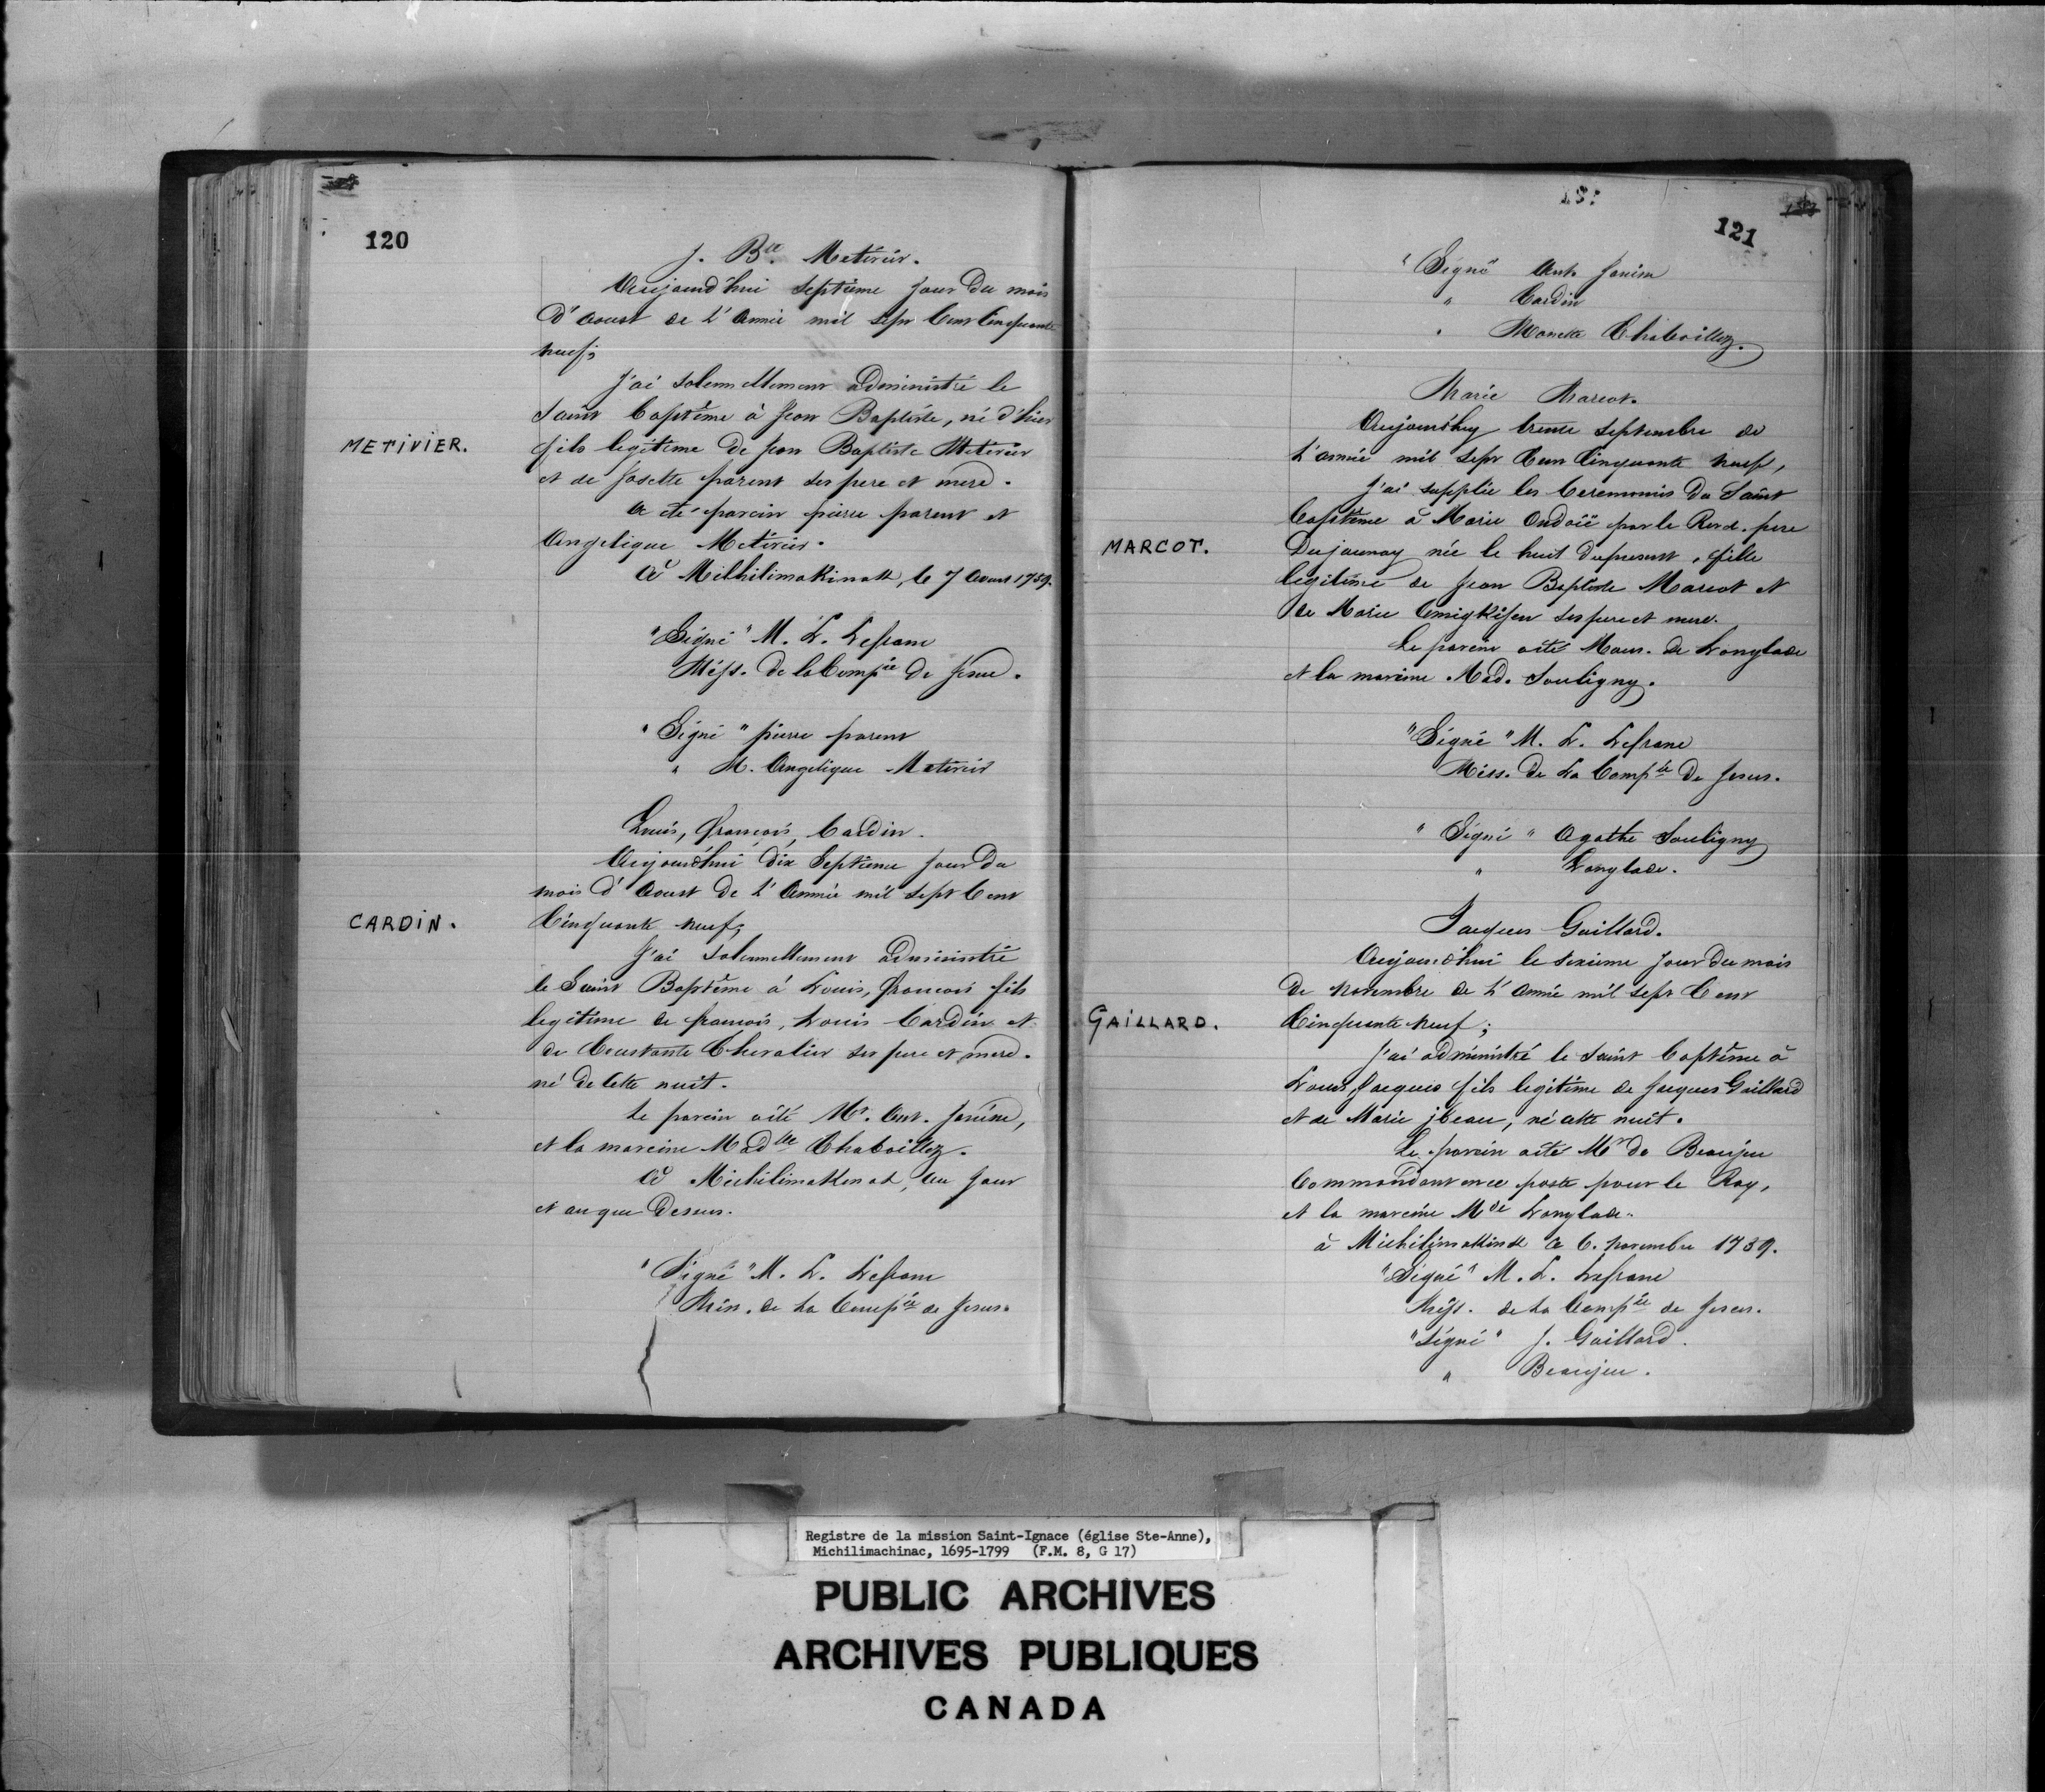 120
J. Bte. Metivier.
Aujourd'hui septieme jour du mois
d'Aoust de L'Année mil sept Cent Cinquante
neuf;
J'ai solemnellement administré le
Saint Baptême à Jean Baptiste, né d'hier
METIVIER.
fils legitime de Jean Baptiste Metivier
et de Josette parent ses pere et mere.
A été parain pierre parent et
Angelique Metivier.
A Michilimakinak, le 7 Aoust 1759.
"Signé" M. L. Lefranc
Miss. de la Compie de Jesus.
"Signé" pierre parent
" M. Angelique Metivier
Louis, françois, Cardin.
Aujourd'hui dix Septieme jour du
mois d'Aoust de L'Année mil sept Cent
CARDIN.
Cinquante neuf;
J'ai Solemnellement administré
le Saint Baptême à Louis, françois fils
legitime de françois, Louis Cardin et
de Constante Chevalier ses pere et mere.
né de cette nuit.
Le parain a été Mr. Ant. Janise,
et la mareine Madlle Chaboillez.
A Michilimakinak, An jour
et an que dessus.
"Signé" M. L. Lefranc
Miss. de La Compie de Jesus.
121
"Signé" Ant. Janise
" Cardin
" Manette Chaboillez.
Marie Marcot.
Aujourdhuy trente Septembre de
L'année mil sept Cent Cinquante neuf,
J'ai supplée les Ceremonies du Saint
Baptême à Marie Ondoïé par le Revd. pere
MARCOT.
Dujaunay née le huit du present, fille
legitime de Jean Baptiste Marcot et
de Marie ses pere et mere.
Le parein a été Mous. de Langlade
et la mareine Mad. Souligny.
"Signé" M. L. Lefranc
Miss. de La Compie De Jesus.
"Signé" Agathe Souligny
" Langlade.
Jacques Gaillard.
Aujourdhui le sixieme jour du mois
de novembre de L'Année mil sept Cent
GAILLARD.
Cinquante neuf;
J'ai administré le saint Baptême à
Louis, Jacques fils legitime de Jacques Gaillard
et de Marie jbeau, né cette nuit.
Le parein a été Mr de Beaujeu
Commandant en ce poste pour le Roy,
et la mareine Mde Langlade.
à Michilimakinak ce 6. novembre 1759.
"Signé" M. L. Lefranc
Miss. de La Compie de Jesus.
"Signé" J. Gaillard.
" Beaujeu.
Registre de la mission Saint-Ignace (église Ste-Anne),
Michilimachinac, 1695-1799 (F.M. 8, G 17)
PUBLIC ARCHIVES
ARCHIVES PUBLIQUES
CANADA